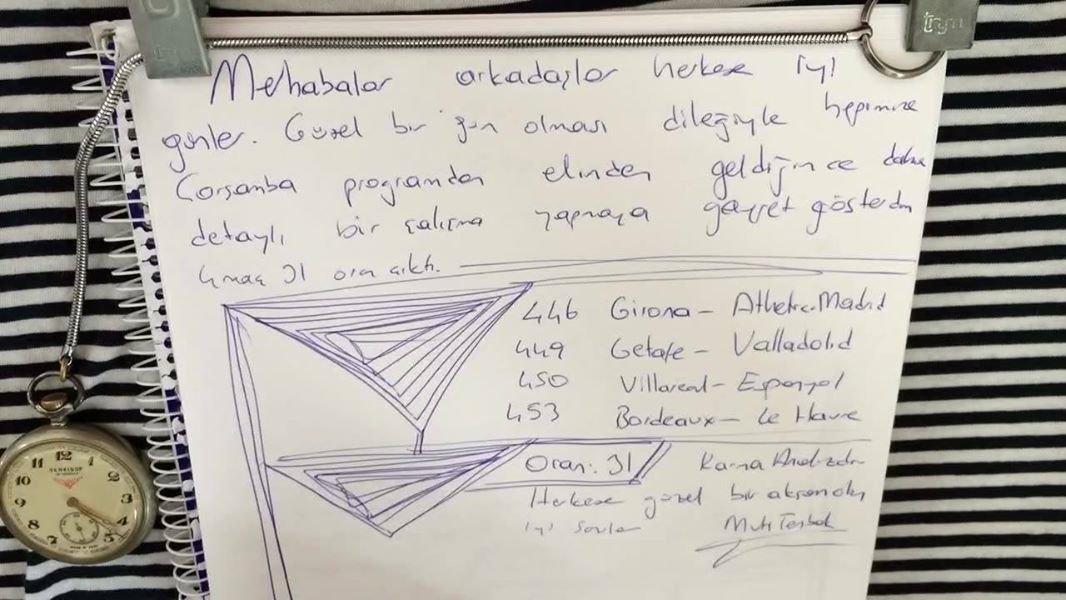 Merhabalar arkadaşlar herkese iyi
günler. Güzel bir gün olması dileğiyle hepimize
Çarşamba programından elimden geldiğince daha
detaylı bir çalışma yapmaya gayret gösterdim
4 maç 31 oran çıktı.
446 Girona - Athletic Madrid
449 Getafe - Valladolid
450 Villareal - Espanyol
453 Bordeaux - Le Havre
Oran: 31
Herkese güzel bir akşam
iyi
12 1 2 3 4 5 7 8 9 10 11